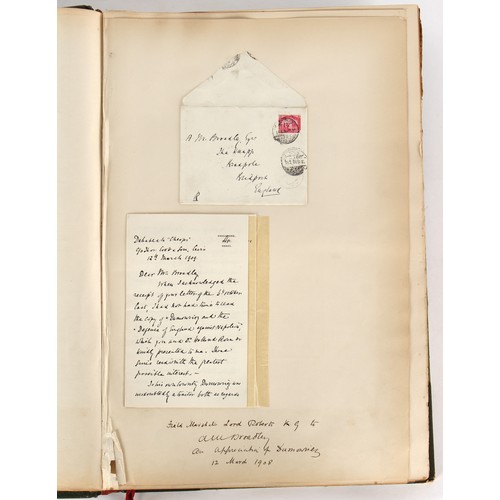 A. M. Broadley, Esq
The Knapp
Bradpole
Bridport
England
Dahabeah "Cheops"
Cairo
12th March 1908
Dear Mr Broadley
When I acknowledged the
receipt of your letter of the 6th October
last, I had not had time to read
the copy of "Dumouriez and the
Defence of England against Napoleon",
which you and Dr Holland Rose so
kindly presented to me. I have
since read with the greatest
possible interest.-
Dumouriez was
undoubtedly a traitor both as regards
Field Marshal Lord Roberts K G to
A M Broadley
An Appreciation of Dumouriez
12 March 1908